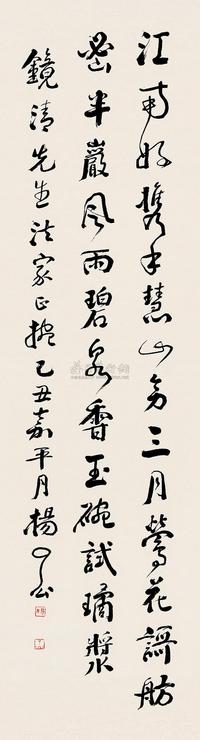 江南好攜手慧山旁三月鶯花讌舫
密半巖風雨碧泉香玉碗試璚漿
鏡清先生法家正捥己丑嘉平月楊